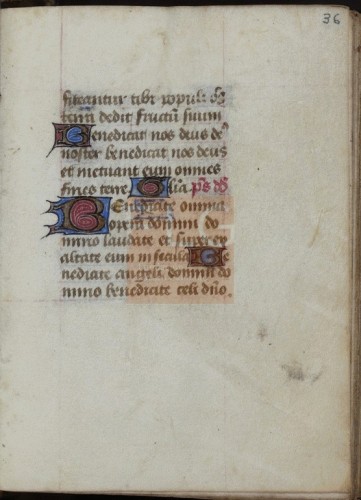 36
fiteantur tibi populi oes
terra dedit fructū suum
Benedicat nos deus de9
noster benedicat nos deus
et metuant eum omnes
fines terre. Glia p̄s dō
Benedicite omnia
opera domini do
mino laudate et super ex
altate eum in secula Be
nedicite angeli domini do
mino benedicite celi dn̄o.